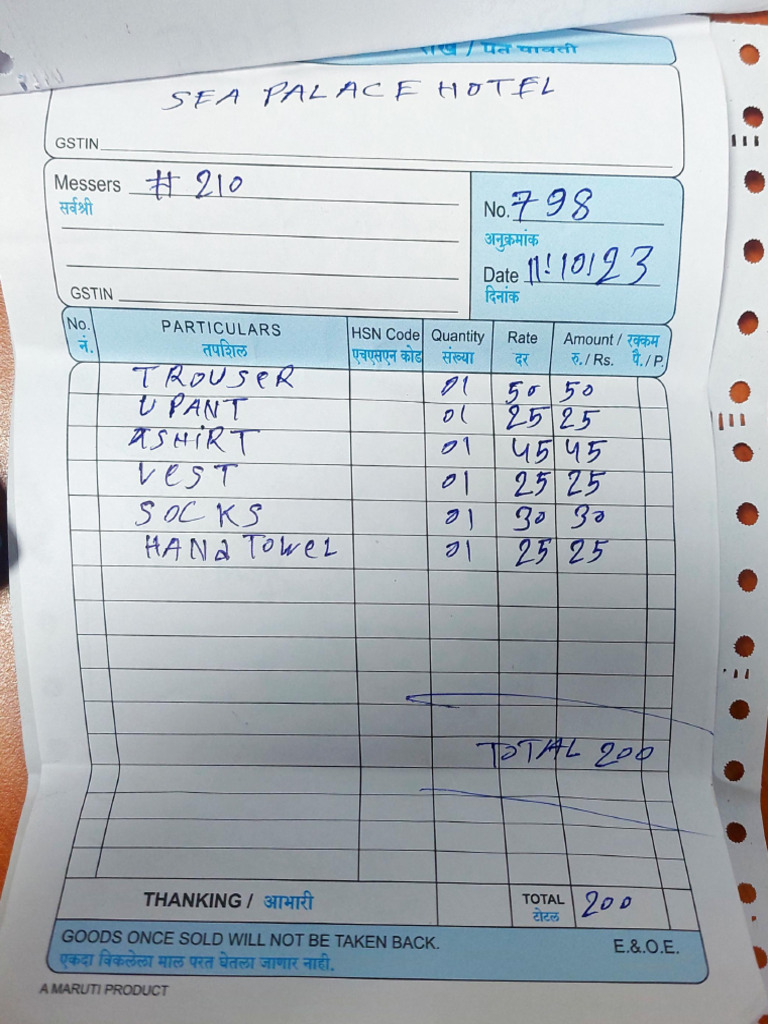 / पत पावती
SEA PALACE HOTEL
GSTIN
Messers # 210
सर्वश्री
No. 798
अनुक्रमांक
Date 11/10/23
दिनांक
GSTIN
No. PARTICULARS HSN Code Quantity Rate Amount / रक्कम
नं. तपशिल एचएसएन कोड संख्या दर रु. / Rs. पै. / P.
TROUSER 01 50 50
U PANT 01 25 25
TSHIRT 01 45 45
VEST 01 25 25
SOCKS 01 30 30
HANd TOWEL 01 25 25
TOTAL 200
THANKING / आभारी TOTAL 200
टोटल
GOODS ONCE SOLD WILL NOT BE TAKEN BACK. E.&.O.E.
एकदा विकलेला माल परत घेतला जाणार नाही.
A MARUTI PRODUCT